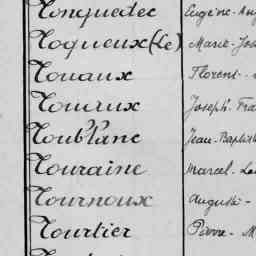 Tonquedec Eugène-Au
Toqueux (Le) Marie-Jos
Touaux Florent-
Touaux Joseph-Fra
Toublanc Jean-Baptist
Touraine Marcel-Lou
Tournoux Auguste-
Tourtier Pierre-M